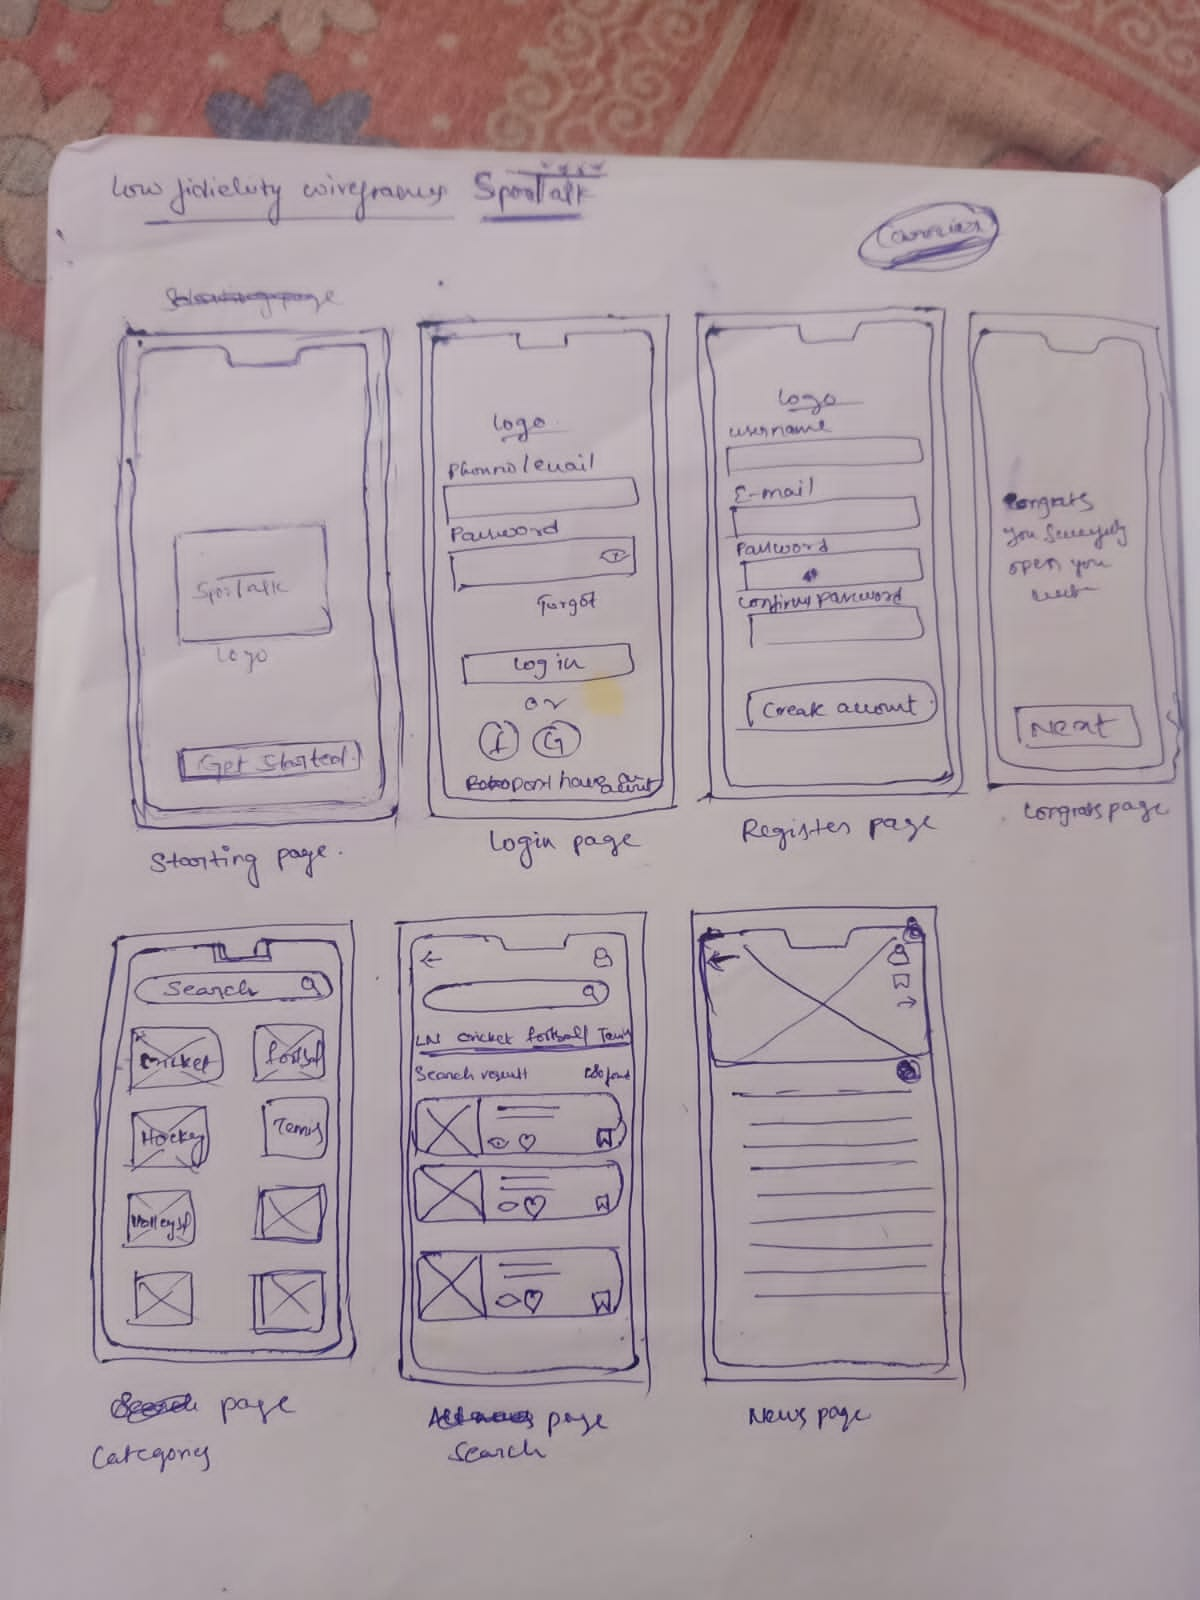 Low fidieluty wireframes SporTalk
page
SporTalk
Logo
Get Started.
Starting page.
Logo
Phonno/email
Password
Forgot
Log in
or
G
Dont have an
acount
Login page
Logo
username
E-mail
Password
Confirm password
Creak account
Register page
Congrats
you
open you
Next
Congrats page
Search
Cricket
football
Hockey
Tennis
page
Category
LN Cricket football Tennis
Search result found
page
Search
News page